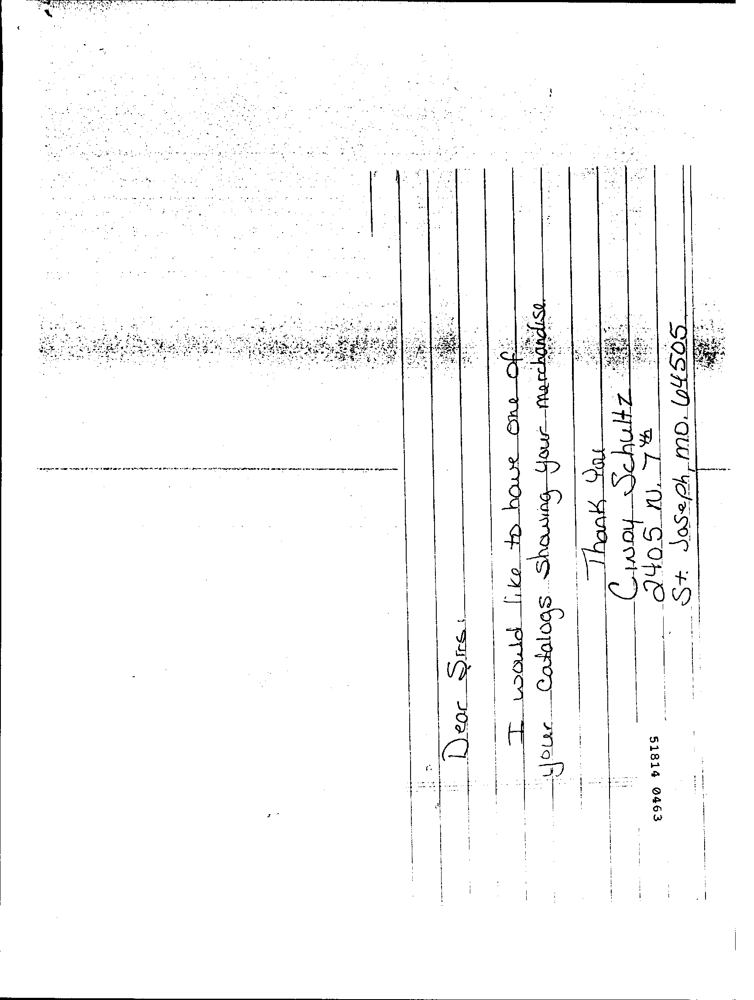 Dear Sirs:
I would like to have one of
your catalogs showing your merchandise
Thank You
Cindy Schultz
2405 N. 7th
St. Joseph, MO. 64505
51814 0463